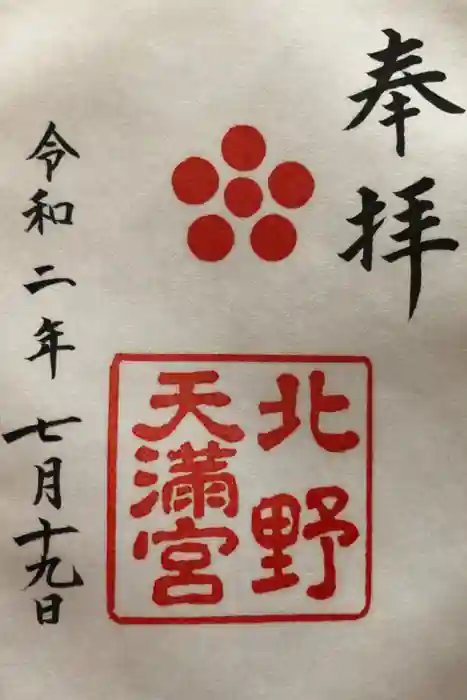 奉拝
北野
天満宮
令和二年七月十九日